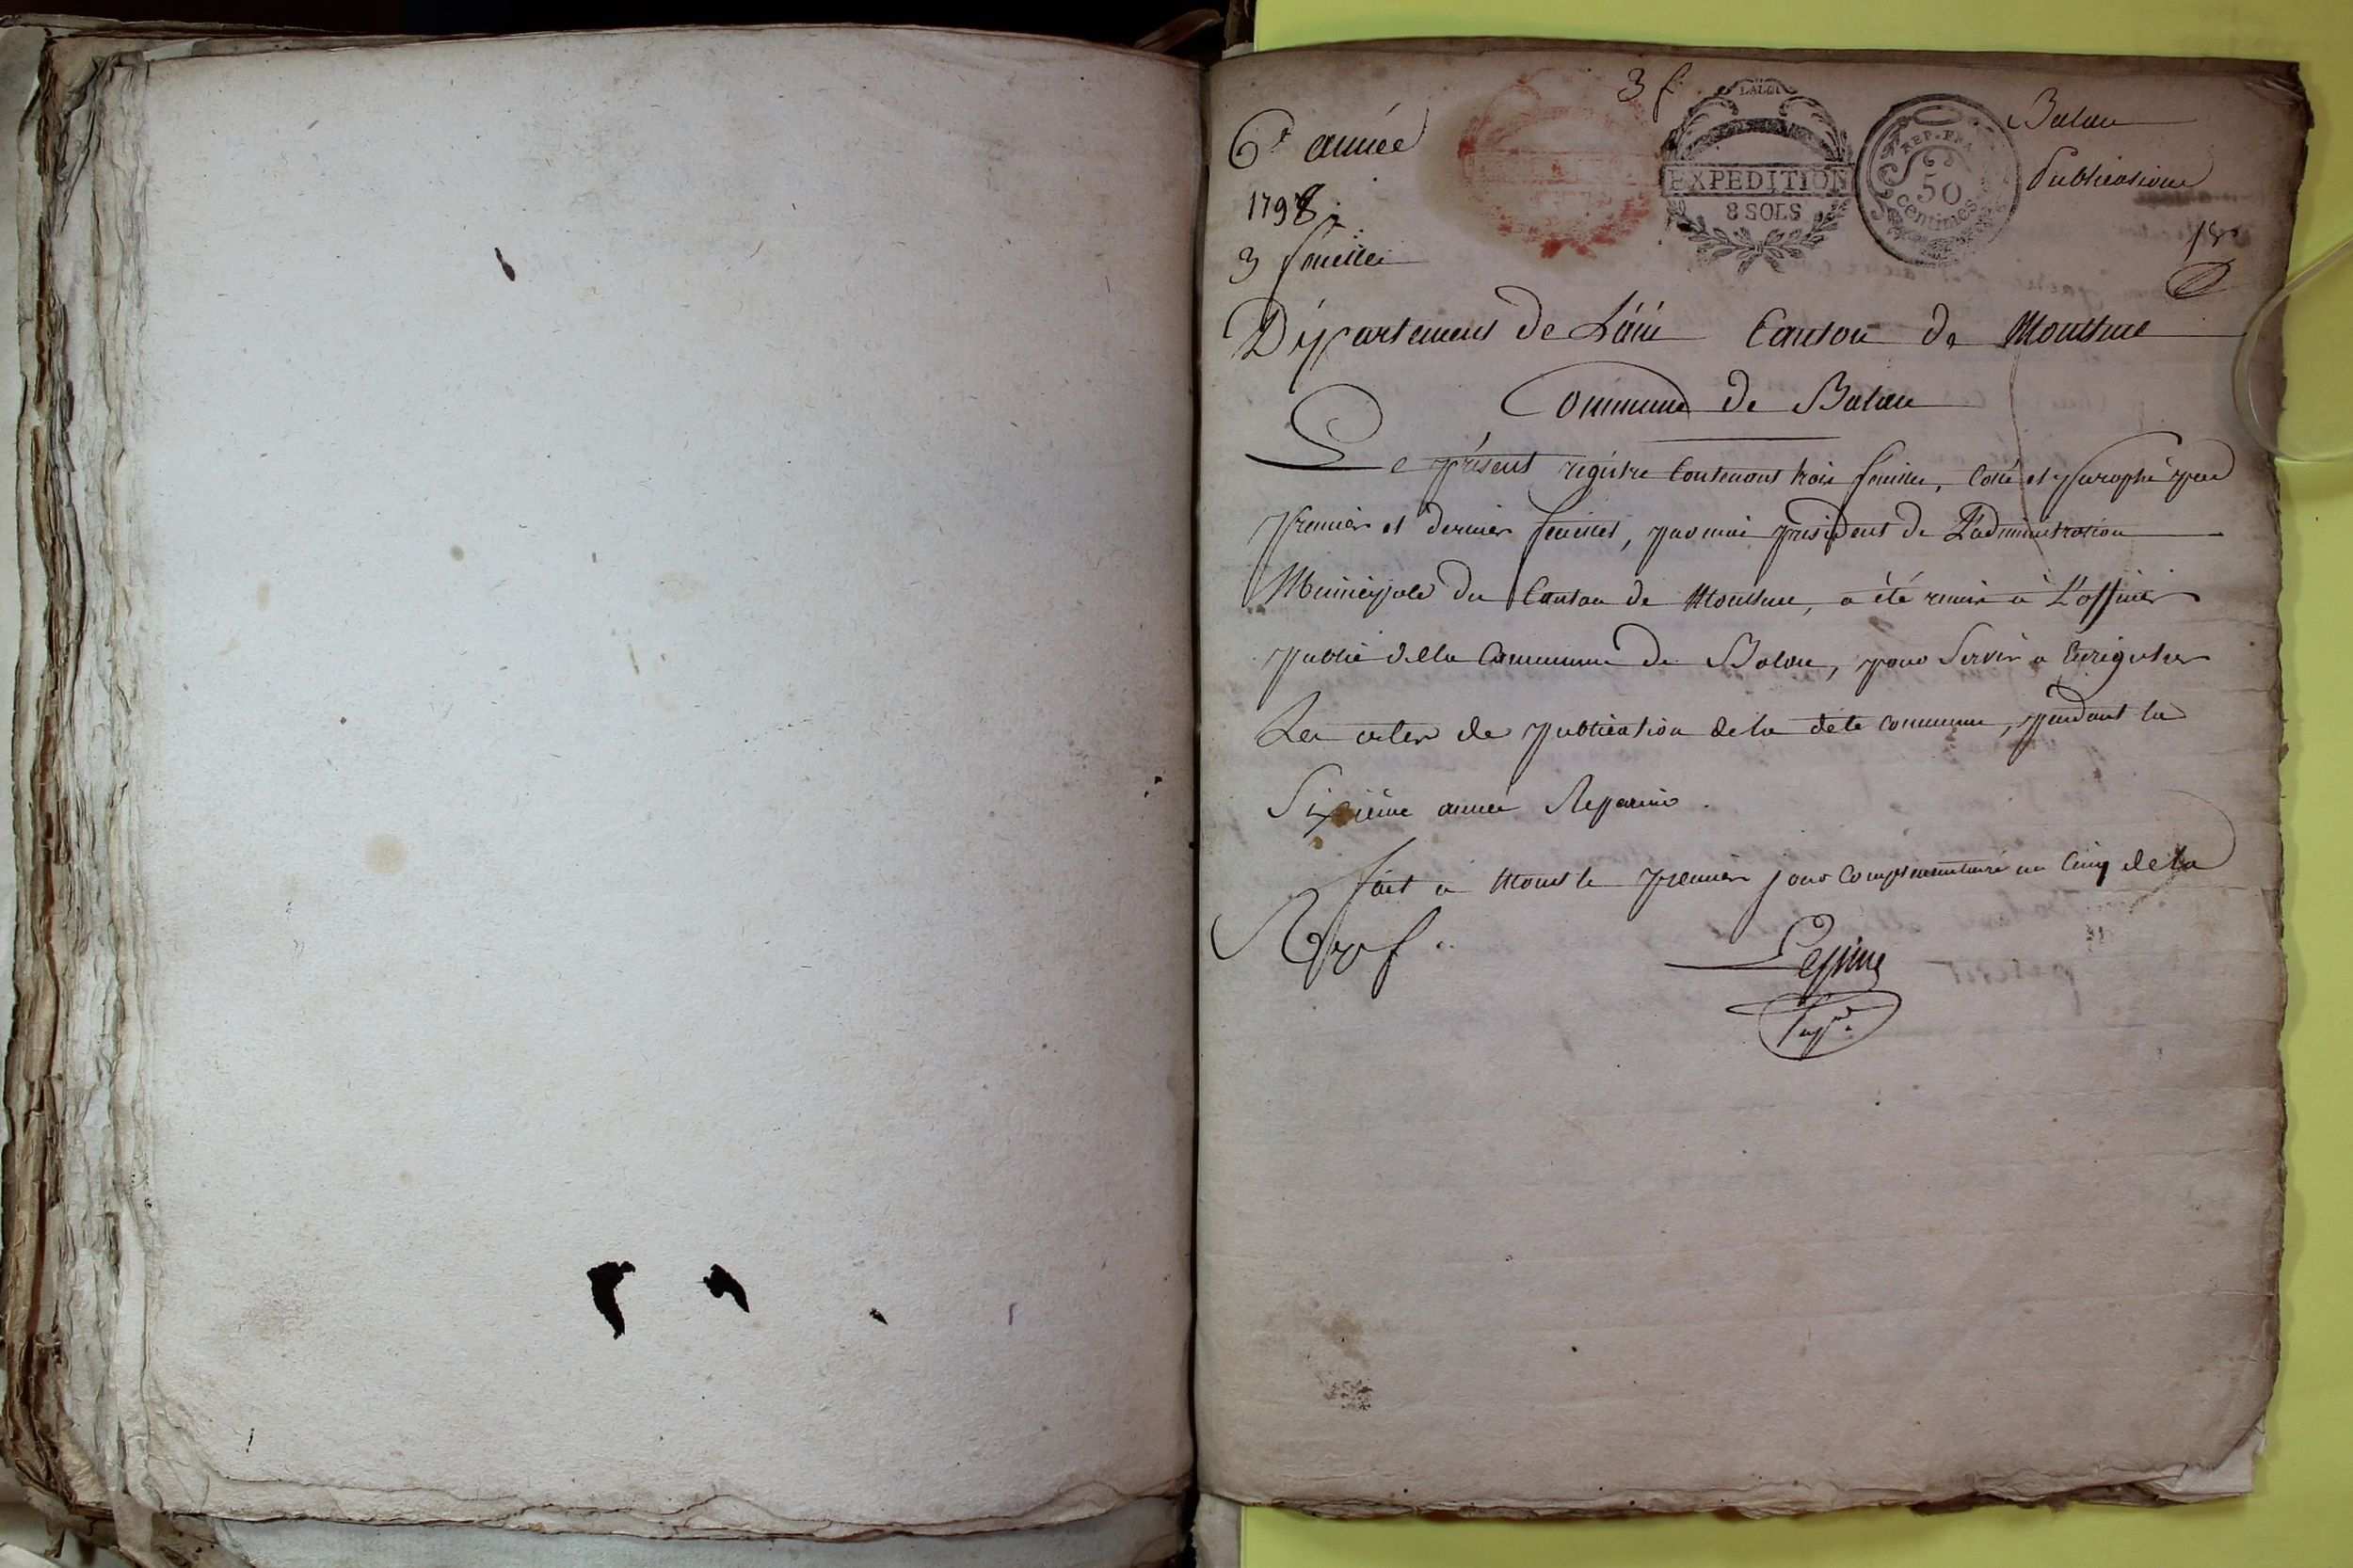 3 f.
6e année
1798.
3 feuilles
LA LOI
EXPEDITION
8 SOLS
REP. FRA.
50
centimes
Balan
Publications
Département de L'ain Canton de Montluel
Commune de Balan
Le présent régistre Contenant trois feuilles, Cotté et paraphé par
premier et dernier feuillet, par moi président de L'administration
Municipale du Canton de Montluel, a été remis à L'officier
public de la Commune de Balan, pour Servir a Enrégistrer
Les actes de publication de la dete commune, pendant la
Sixième année Repub.
fait a Montl. le premier jour complementaire an Cinq de la
Rep. f.